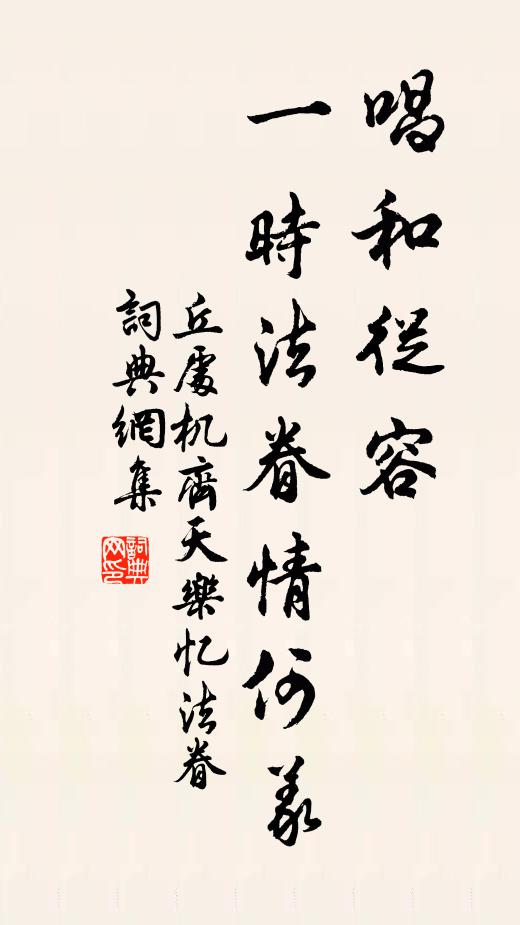 唱和從容
一時法眷情何義
丘處机齊天樂忆法眷
詞典網集
詞典网印